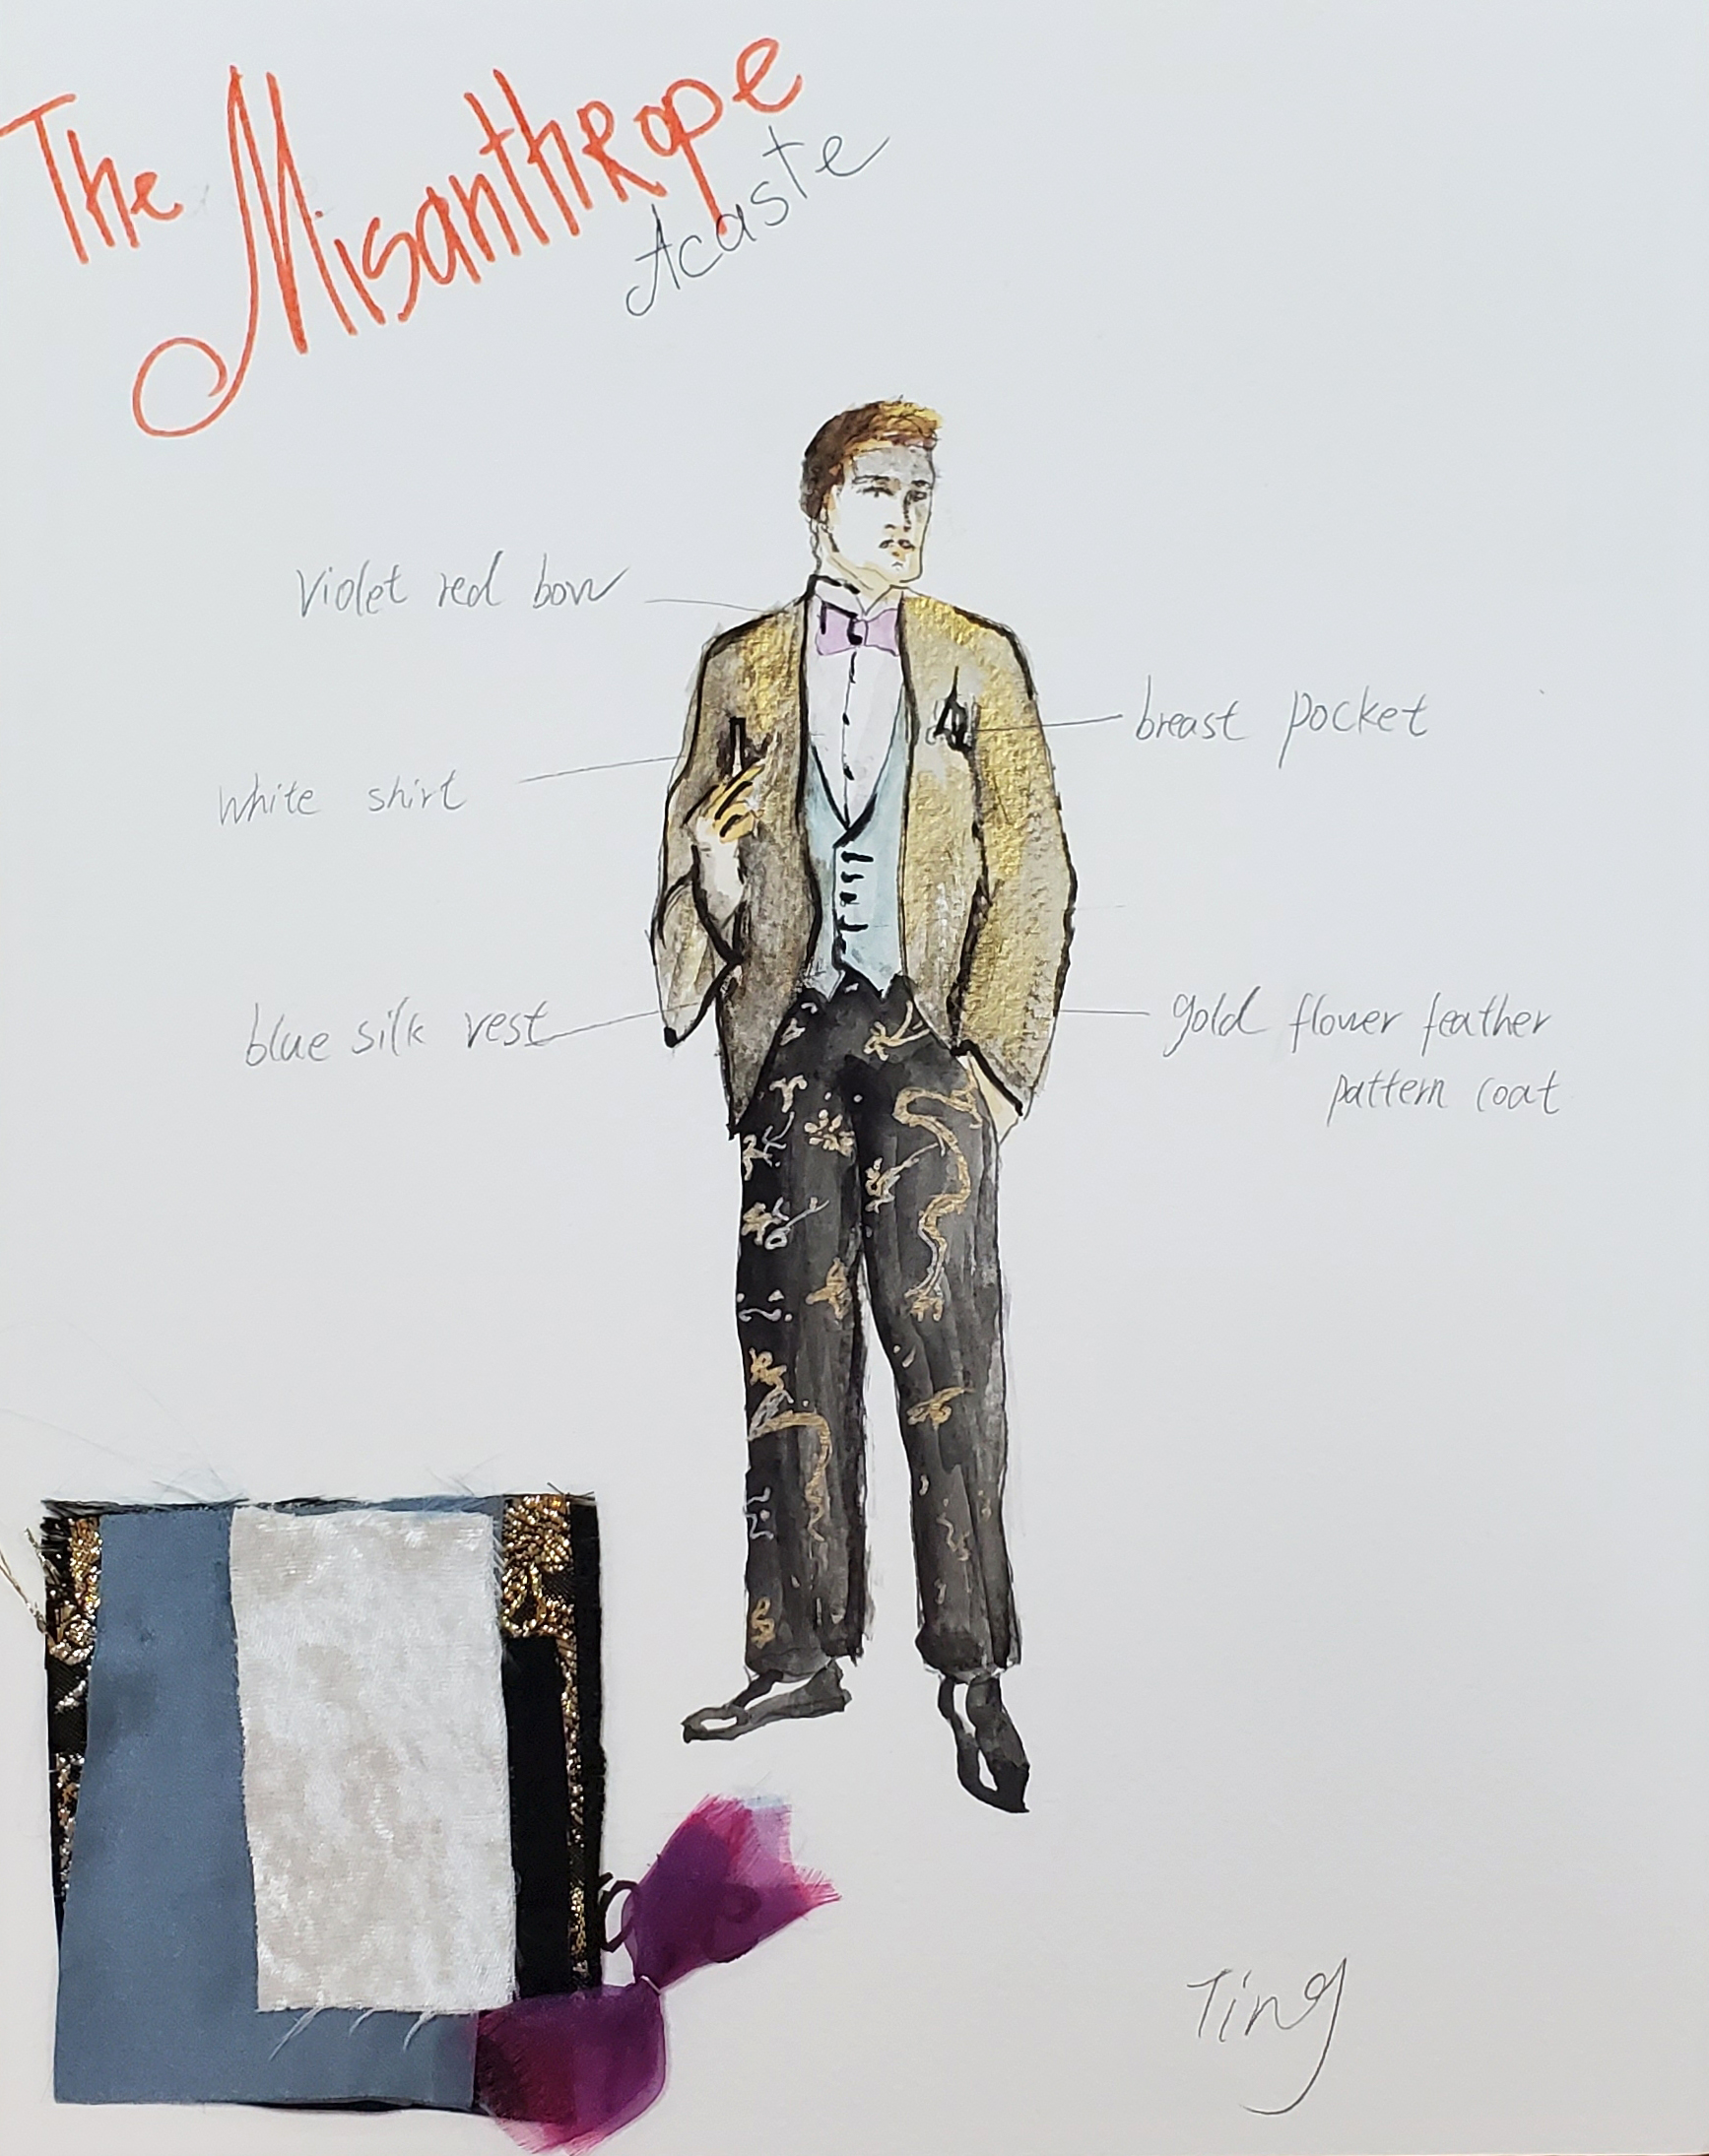 The Misanthrope
Acaste
Violet red bow
breast pocket
white shirt
blue silk vest
gold flower feather
pattern coat
Ting